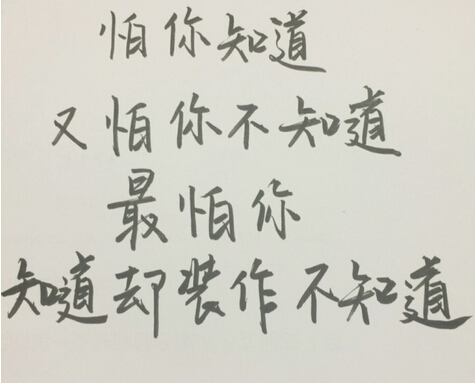 怕你知道
又怕你不知道
最怕你
知道却装作不知道